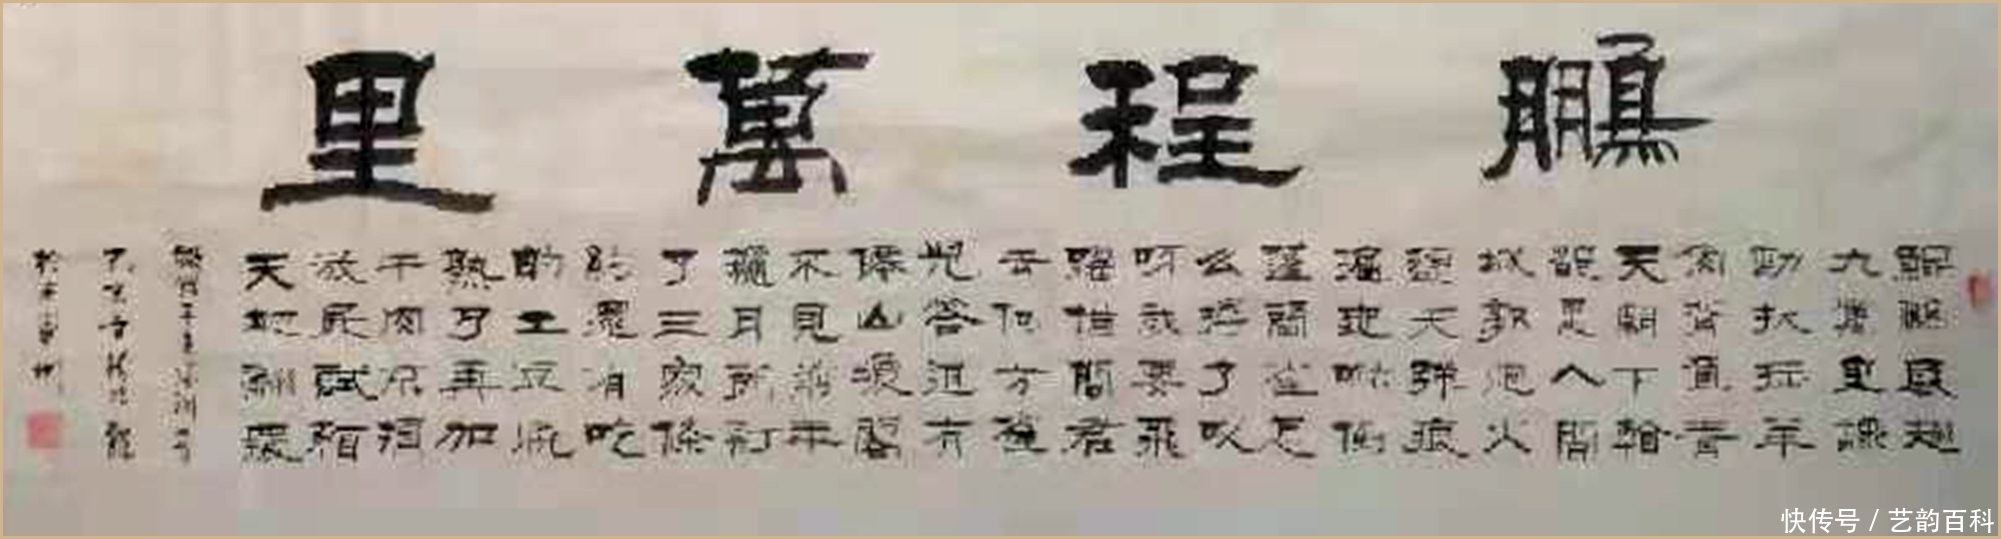 鵬程萬里
鯤鵬展翅
九萬里翻
動扶摇羊
角背負青
天朝下看
都是人間
城郭炮火
連天弹痕
遍地嚇倒
蓬間雀怎
么得了哎
呀我要飛
躍借問君
去何方雀
兒答道有
僊山瓊閣
不見前年
秋月朗訂
了三家條
約還有吃
的土豆燒
熟了再加
牛肉不須
放屁試看
天地翻覆
快传号 / 艺韵百科